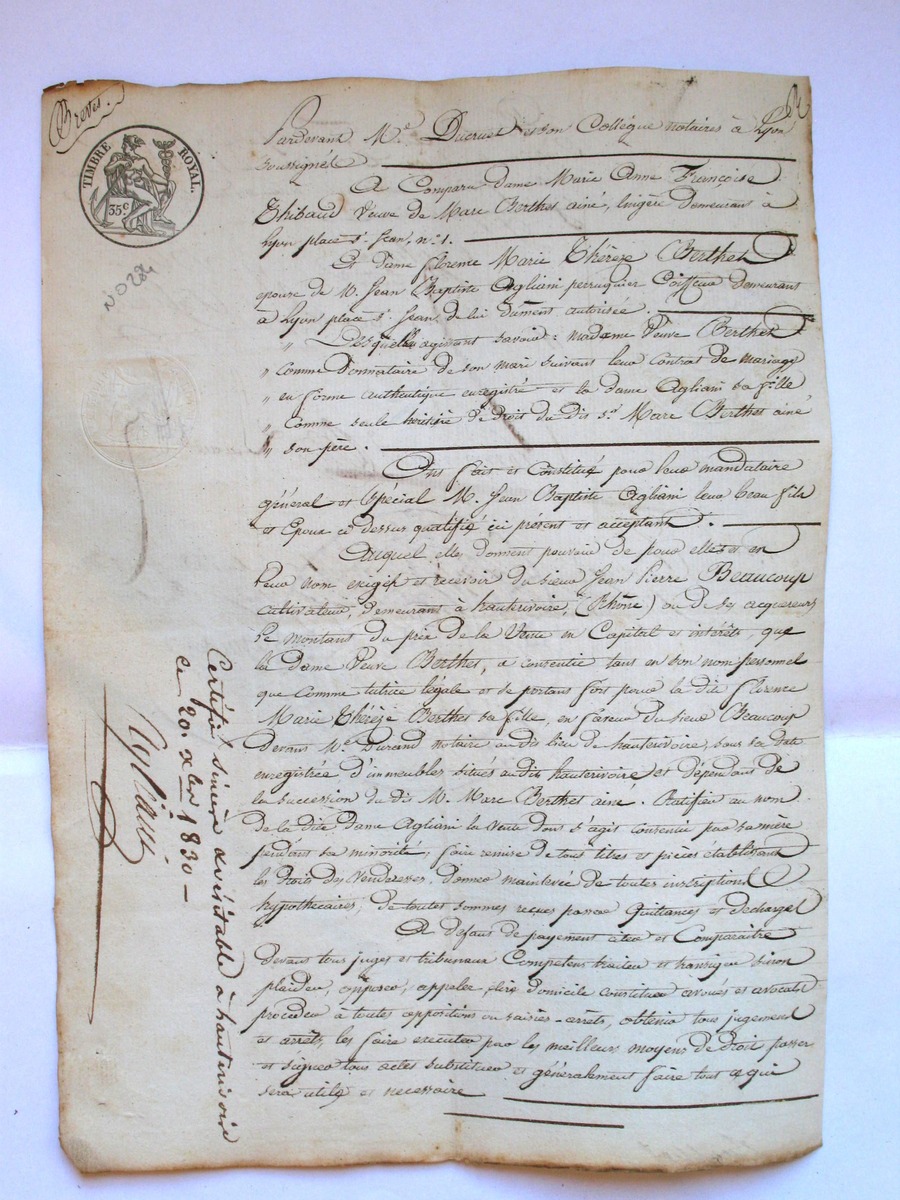 Brevet.
TIMBRE ROYAL.
35 c
N° 284
Pardevant Me. Ducruet et son Collégue notaires à Lyon
soussignés
A Comparu dame Marie Anne Françoise
Thibaud Veuve de Marc Berthet ainé, lingère demeurant à
Lyon place St. Jean, n°. 1.
Et dame florence Marie Thérèze Berthet
epouse de M. Jean Baptiste Agliani perruquier Coiffeur demeurant
à Lyon place St. Jean, de lui dûment autorisée.
" Lesquelles agissant savoir : madame Veuve Berthet
" comme donnataire de son mari suivant leur contrat de mariage
" en forme authentique enregistré et la dame Agliani sa fille
" comme seule héritière de droit du dit Sr. Marc Berthet ainé
" son père.
Ont fait et constitué pour leur mandataire
général et spécial M. Jean Baptiste Agliani leur beau fils
et Epoux ci dessus qualifié ici présent et acceptant.
Auquel elles donnent pouvoir de pour elles et en
leur nom exiger et recevoir du sieur Jean Pierre Beaucoup
cultivateur, demeurant à hauterivoire, (Rhône) ou de ses acquereurs
le montant du prix de la Vente en Capital et intérêts, que
la dame Veuve Berthet, a consentie tant en son nom personnel
que comme tutrice légale et se portant fort pour la dite florence
Marie Thérèze Berthet sa fille, en faveur du sieur Beaucoup
devant Me. Durand notaire au dit lieu de hauterivoire, sous sa date
enregistrée d'immeubles situés au dit hauterivoire et dépendant de
la succession du dit M. Marc Berthet ainé. Ratifier au nom
de la dite dame Agliani la Vente dont s'agit consentie par sa mère
pendant sa minorité, faire remise de tous titres et pièces établissant
les droits des Venderesses, donner mainlevée de toutes inscriptions
hypothécaires, de toutes sommes reçues passer Quittances et décharges
A défaut de payement citer et Comparaitre
devant tous juges et tribunaux Compétens traiter et transiger sinon
plaider, opposer, appeler élire domicile constituer avoués et avocats
procéder à toutes oppositions ou saisies-arrêts, obtenir tous jugement
et arrêts, les faire executer par les meilleurs moyens de droit passer
et signer tous actes substituer et généralement faire tout ce qui
sera utile et necessaire
Certifié sincère & véritable à hauterivoire
ce 20. xbre 1830 -
Agliani